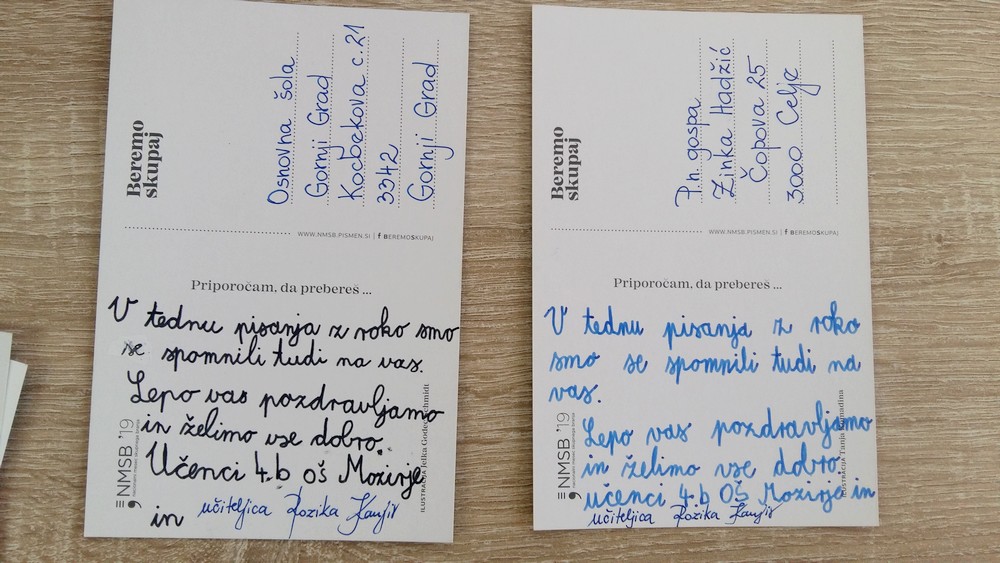 Beremo
skupaj
Osnovna šola
Gornji Grad
Kocbekova c. 21
3342
Gornji Grad
WWW.NMSB.PISMEN.SI | f BEREMOSKUPAJ
Priporočam, da prebereš ...
V tednu pisanja z roko smo
se spomnili tudi na vas.
Lepo vas pozdravljamo
in želimo vse dobro.
Učenci 4.b OŠ Mozirje
in učiteljica Rozika
NMSB '19
ILUSTRACIJA Jelka
Beremo
skupaj
P.n. gospa
Zinka Hadžić
Čopova 25
3000 Celje
WWW.NMSB.PISMEN.SI | f BEREMOSKUPAJ
Priporočam, da prebereš ...
V tednu pisanja z roko
smo se spomnili tudi na
vas.
Lepo vas pozdravljamo
in želimo vse dobro.
učenci 4.b OŠ Mozirje in
učiteljica Rozika
NMSB '19
ILUSTRACIJA Tanja